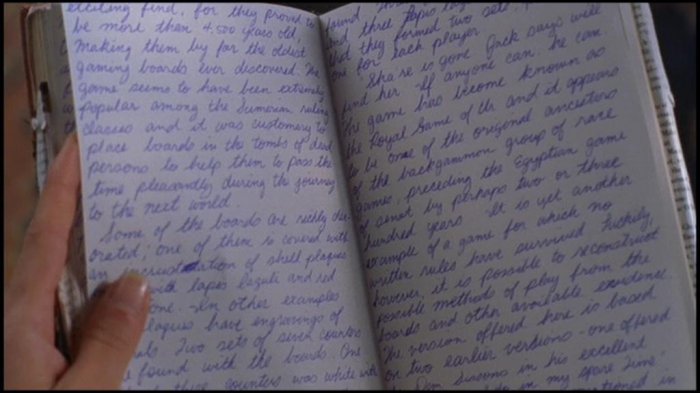 exciting find, for they proved to
be more than 4,500 years old,
making them by far the oldest
gaming boards ever discovered. The
game seems to have been extremely
popular among the Sumerian ruling
classes and it was customary to
place boards in the tombs of dead
persons to help them to pass the
time pleasantly during the journey
to the next world.
Some of the boards are richly dec-
orated; one of them is covered with
an incrustation of shell plaques
with lapes lazuli and red
one. In other examples
laques have engravings of
als. Two sets of seven counters
found with the boards. One
these counters was white with
found
and three lapis
that they formed two sets,
one for each player
Sha re is gone Jack says will
find her. If anyone can he can
The game has become known as
the Royal Game of Ur and it appears
to be one of the original ancestors
of the backgammon group of race
games, preceding the Egyptian game
of senat by perhaps two or three
hundred years. It is yet another
example of a game for which no
written rules have survived. Luckily,
however, it is possible to reconstruct
possible methods of play from the
boards and other available evidence
The version offered here is based
on two earlier versions - one offered
in his excellent
in my spare time,
mentioned in